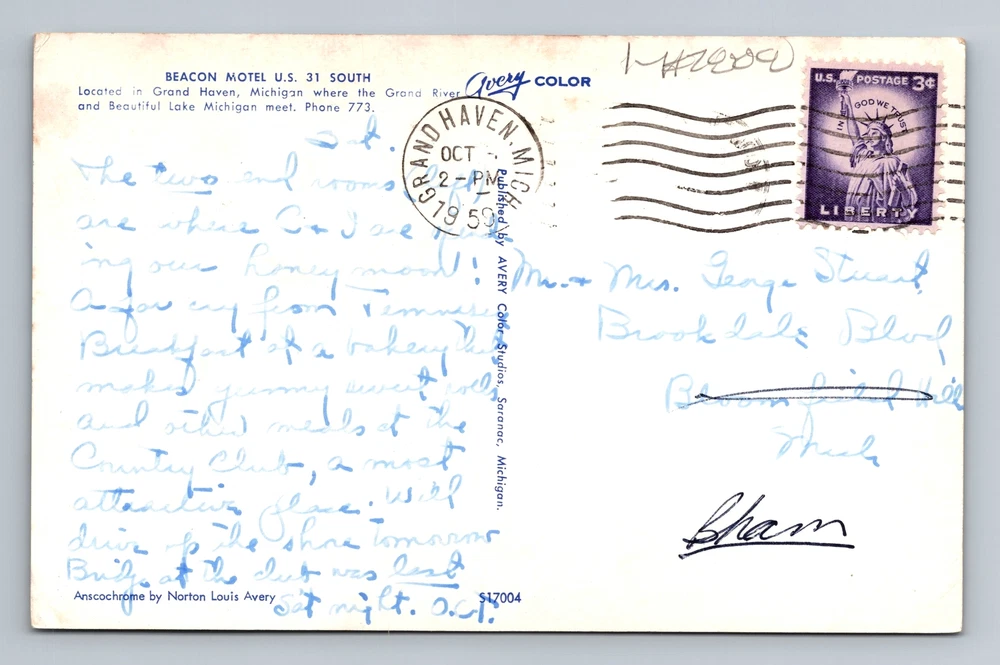 BEACON MOTEL U.S. 31 SOUTH
Located in Grand Haven, Michigan where the Grand River
and Beautiful Lake Michigan meet. Phone 773.
Avery COLOR
GRAND HAVEN, MICH
OCT
2 - PM
1959
U.S. POSTAGE 3¢
IN GOD WE TRUST
LIBERTY
Sat.
The two end rooms
are where C & I are
ing our honeymoon!
A far cry from
Breakfast at a bakery
makes yummy sweet rolls
and other meals at the
Country Club, a most
attractive place. Will
drive up the shore tomorrow
Bridge at the club was last
Sat night.
Published by AVERY Color Studios, Saranac, Michigan.
Mr. & Mrs. George Stuart
Brookdale Blvd
Bloomfield Hills
Mich
Bham
Anscochrome by Norton Louis Avery
S17004